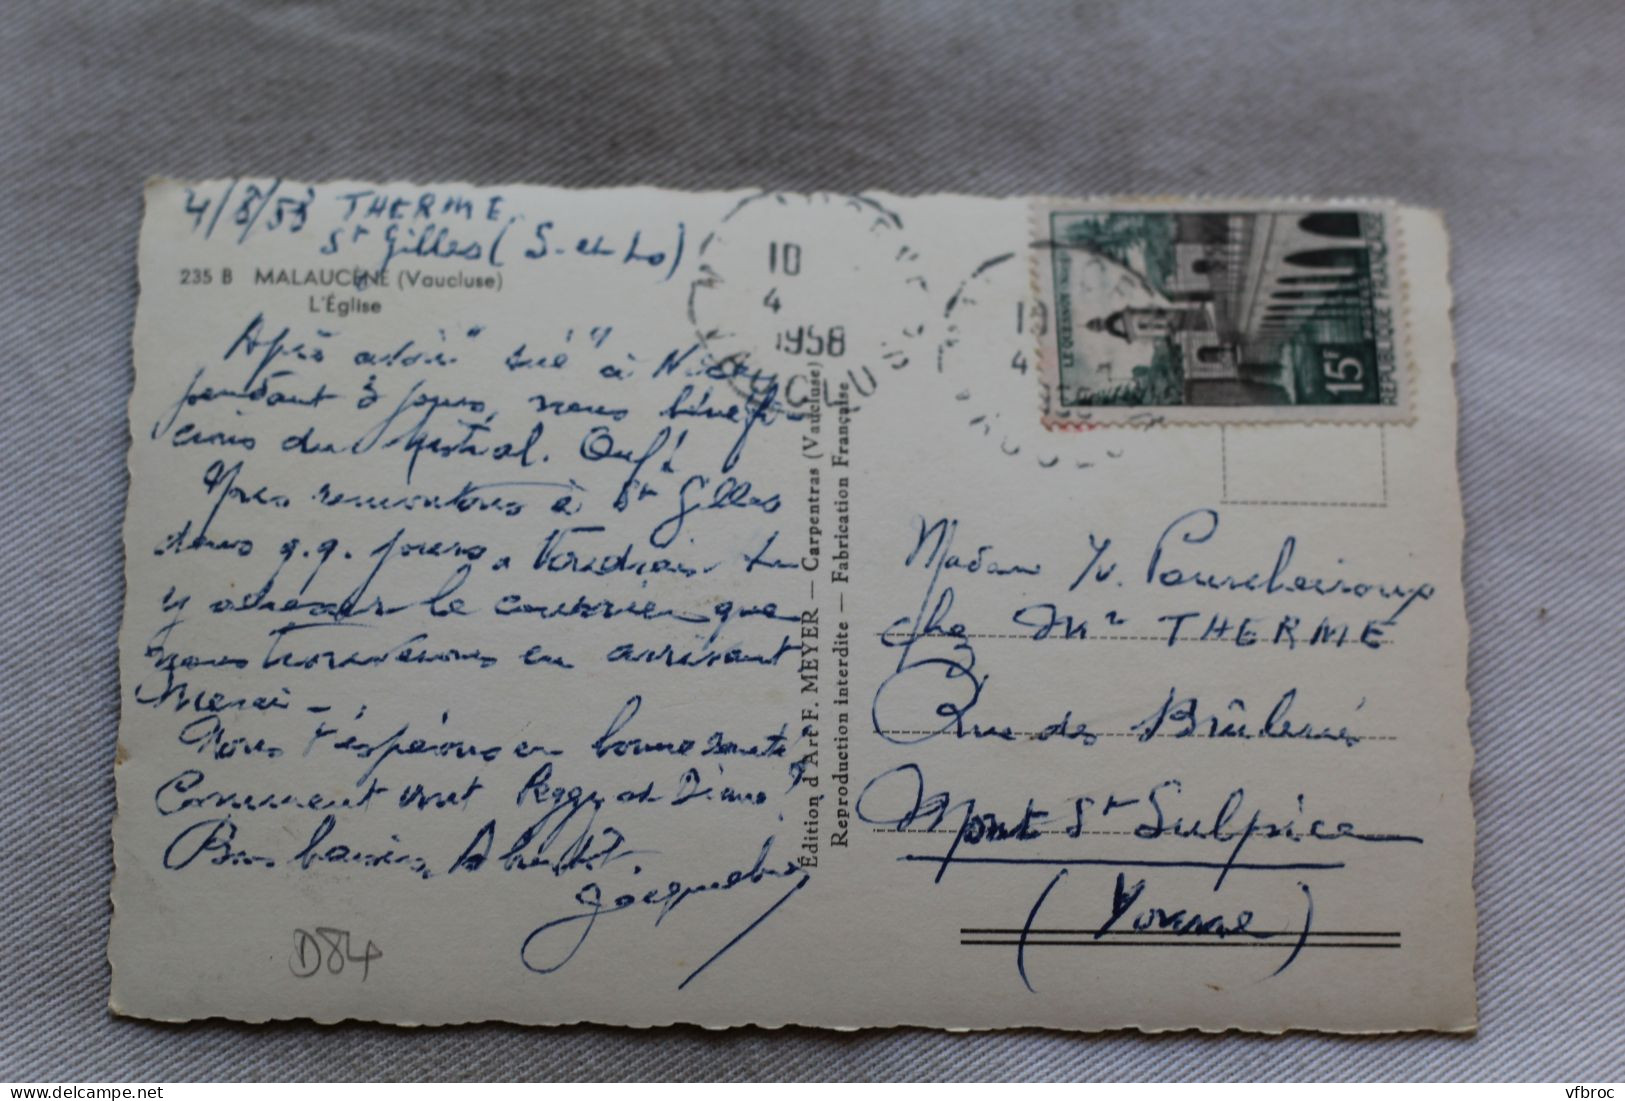 THERME.
St Gilles (S-et-Lo)
235 B MALAUCÈNE (Vaucluse)
L'Église
Après avoir "sué" à
pendant 3 jours, nous bénéfi-
cions du mistral. Ouf!
Nous remontons à St Gilles
dans q.q. jours. Voudrais-tu
y adresser le courrier que
nous trouverons en arrivant
Merci -.
Nous t'espérons en bonne santé
Comment vont Peggy et ?
Bons baisers, A bientôt.
Jacqueline
D84
Édition d'Art F. MEYER — Carpentras (Vaucluse)
Reproduction interdite — Fabrication Française
10
4
1958
VAUCLUSE
LE QUESNOY (Nord)
15F
REPUBLIQUE FRANÇAISE
Madame Yv.
chez Mr THERME
Rue des Brûleries
Mont St Sulpice
(Yonne)
vfbroc